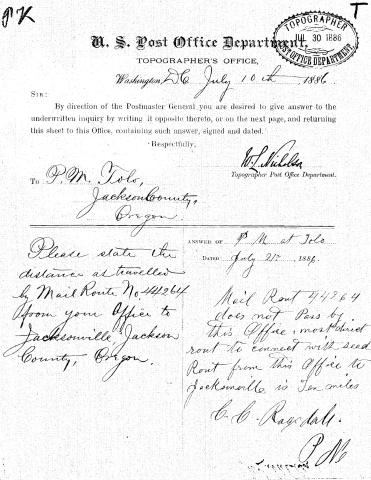 PK
T
TOPOGRAPHER
JUL 30 1886
POST OFFICE DEPARTMENT.
U. S. Post Office Department,
TOPOGRAPHER'S OFFICE,
Washington, DC July 10th, 1886.
SIR:
By direction of the Postmaster General you are desired to give answer to the
underwritten inquiry by writing it opposite thereto, or on the next page, and returning
this sheet to this Office, containing such answer, signed and dated.
Respectfully,
W. L. Nicholson
Topographer Post Office Department.
To P. M. Tolo,
Jackson County,
Oregon.
Please state the
distance as travelled
by Mail Route No 44264
from your Office to
Jacksonville Jackson
County, Oregon.
ANSWER OF P M at Tolo
DATED July 21st, 1886.
Mail Rout 44264
does not Pass by
this Office, most direct
rout to connect with said
Rout from this Office to
Jacksonville is Ten miles
C. C. Ragsdale.
P M